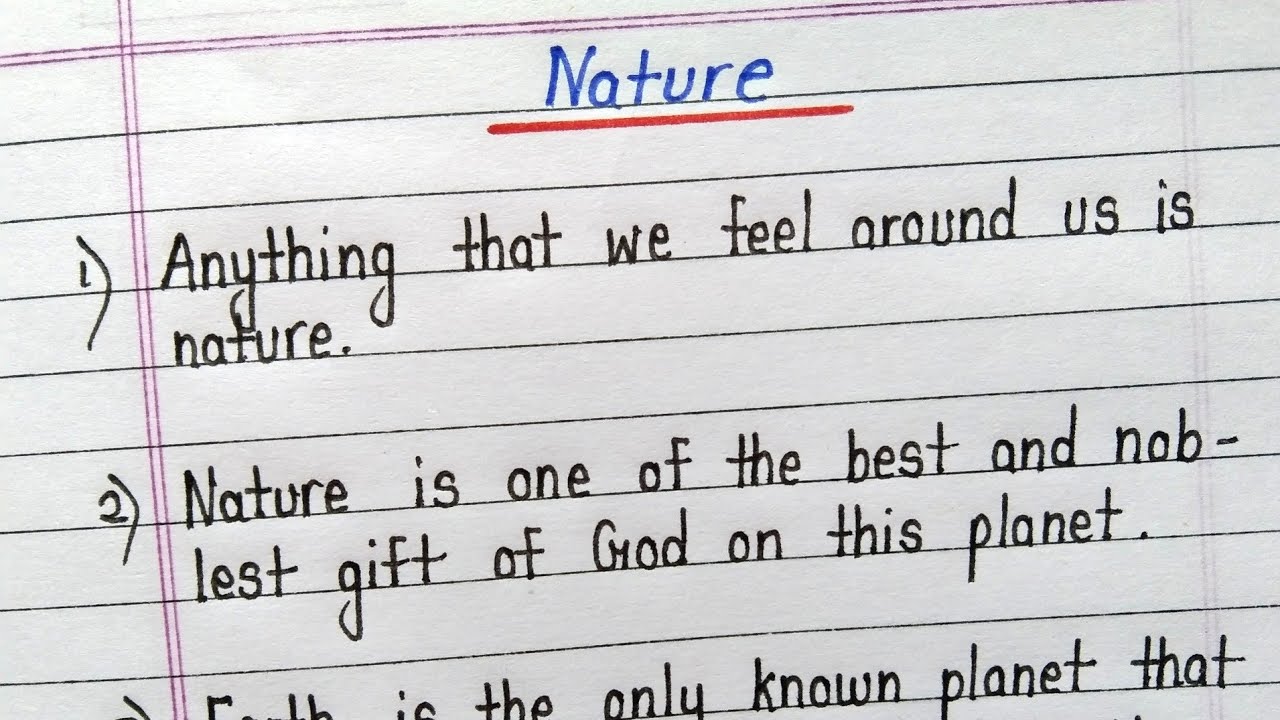 Nature
1) Anything that we feel around us is
nature.
2) Nature is one of the best and nob-
lest gift of God on this planet.
Earth is the only known planet that